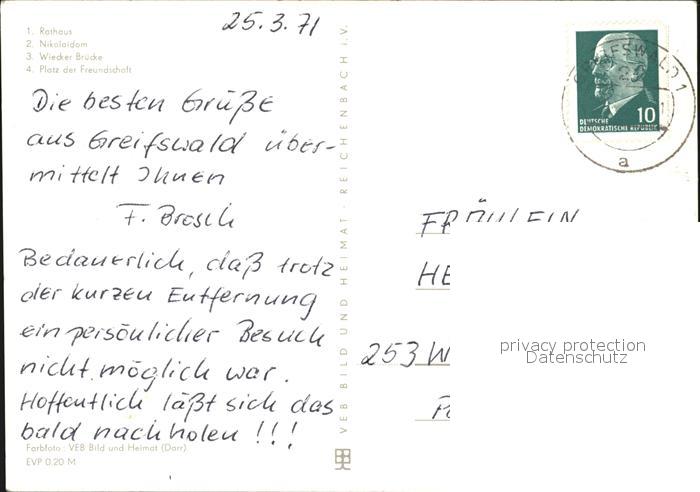 25.3.71
1. Rathaus
2. Nikolaidom
3. Wiecker Brücke
4. Platz der Freundschaft
Die besten Grüße
aus Greifswald über-
mittelt Ihnen
F. Brosch
Bedauerlich, daß trotz
der kurzen Entfernung
ein persönlicher Besuch
nicht möglich war.
Hoffentlich läßt sich das
bald nachholen !!!
Farbfoto: VEB Bild und Heimat (Darr)
EVP 0.20 M
VEB BILD UND HEIMAT · REICHENBACH i.V.
GREIFSWALD 1
a
10
DEUTSCHE
DEMOKRATISCHE REPUBLIK
FRÄULEIN
HE
253 W
privacy protection
Datenschutz